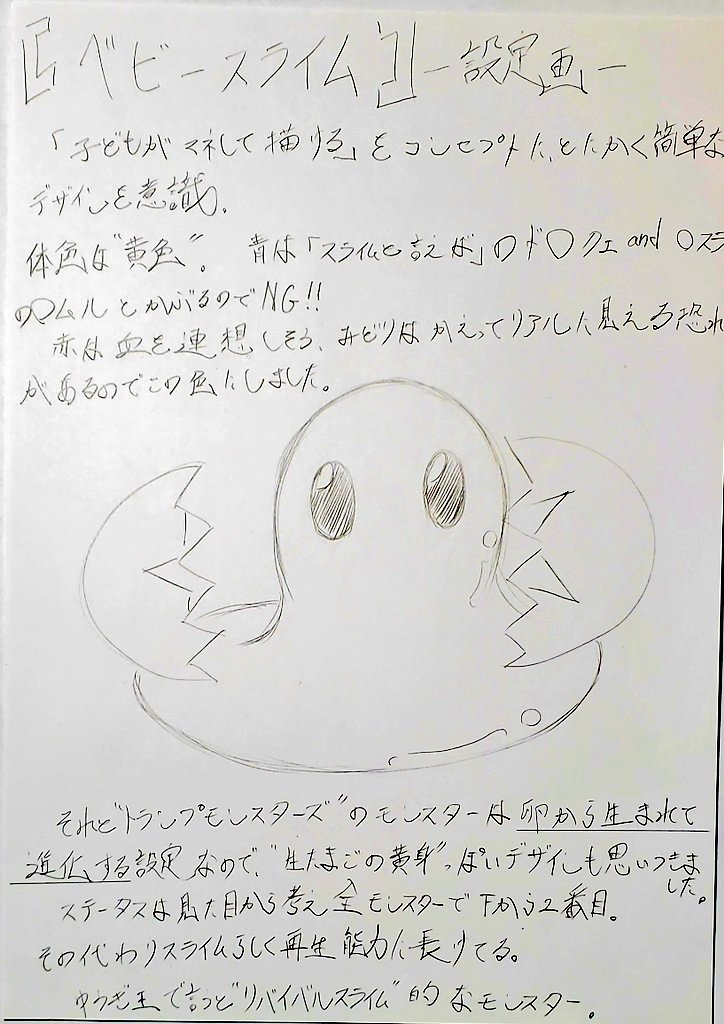 【ベビースライム】ー設定画ー
「子どもがマネして描ける」をコンセプトに、とにかく簡単な
デザインを意識。
体色は“黄色”。青は「スライムと言えば」のド〇クエand〇スラ
の〇ムルとかぶるのでNG!!
赤は血を連想しそう、みどりはかえってリアルに見える恐れ
があるのでこの色にしました。
それと“トランプモンスターズ”のモンスターは卵から生まれて
進化する設定なので、“生たまごの黄身”っぽいデザインも思いつきま
した。
ステータスは見た目から考え全モンスターで下から2番目。
その代わりスライムらしく再生能力に長けてる。
ゆうぎ王で言うと“リバイバルスライム”的なモンスター。